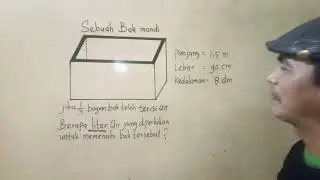 Sebuah Bak mandi
Panjang = 1,5 m
Lebar = 90 cm
Kedalaman = 8 dm
jika 1/3 bagian bak telah terisi air
Berapa liter air yang diperlukan
untuk memenuhi bak tersebut ?